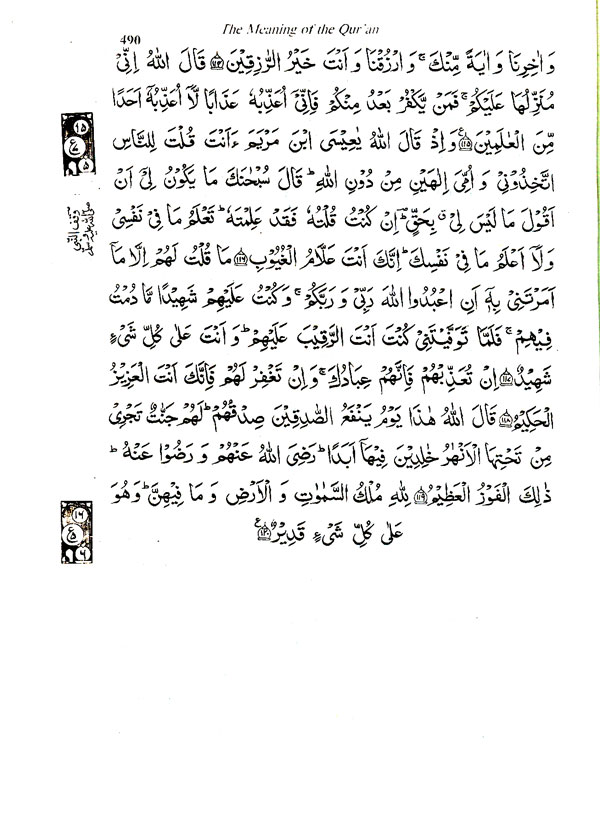 The Meaning of the Qur'an
490
وَاٰخِرِنَا وَاٰيَةً مِّنْكَ ۚ وَارْزُقْنَا وَاَنْتَ خَيْرُ الرّٰزِقِيْنَ ﴿۱۱۴﴾ قَالَ اللّٰهُ اِنِّيْ
مُنَزِّلُهَا عَلَيْكُمْ ۚ فَمَنْ يَّكْفُرْ بَعْدُ مِنْكُمْ فَاِنِّيْٓ اُعَذِّبُهٗ عَذَابًا لَّآ اُعَذِّبُهٗٓ اَحَدًا
مِّنَ الْعٰلَمِيْنَ ﴿۱۱۵﴾ وَاِذْ قَالَ اللّٰهُ يٰعِيْسَى ابْنَ مَرْيَمَ ءَاَنْتَ قُلْتَ لِلنَّاسِ
اتَّخِذُوْنِيْ وَاُمِّيَ اِلٰهَيْنِ مِنْ دُوْنِ اللّٰهِ ؕ قَالَ سُبْحٰنَكَ مَا يَكُوْنُ لِيْٓ اَنْ
اَقُوْلَ مَا لَيْسَ لِيْ ۗ بِحَقٍّ ؕ اِنْ كُنْتُ قُلْتُهٗ فَقَدْ عَلِمْتَهٗ ؕ تَعْلَمُ مَا فِيْ نَفْسِيْ
وَلَآ اَعْلَمُ مَا فِيْ نَفْسِكَ ؕ اِنَّكَ اَنْتَ عَلَّامُ الْغُيُوْبِ ﴿۱۱۶﴾ مَا قُلْتُ لَهُمْ اِلَّا مَآ
اَمَرْتَنِيْ بِهٖٓ اَنِ اعْبُدُوا اللّٰهَ رَبِّيْ وَرَبَّكُمْ ۚ وَكُنْتُ عَلَيْهِمْ شَهِيْدًا مَّا دُمْتُ
فِيْهِمْ ۚ فَلَمَّا تَوَفَّيْتَنِيْ كُنْتَ اَنْتَ الرَّقِيْبَ عَلَيْهِمْ ؕ وَاَنْتَ عَلٰى كُلِّ شَيْءٍ
شَهِيْدٌ ﴿۱۱۷﴾ اِنْ تُعَذِّبْهُمْ فَاِنَّهُمْ عِبَادُكَ ۚ وَاِنْ تَغْفِرْ لَهُمْ فَاِنَّكَ اَنْتَ الْعَزِيْزُ
الْحَكِيْمُ ﴿۱۱۸﴾ قَالَ اللّٰهُ هٰذَا يَوْمُ يَنْفَعُ الصّٰدِقِيْنَ صِدْقُهُمْ ؕ لَهُمْ جَنّٰتٌ تَجْرِيْ
مِنْ تَحْتِهَا الْاَنْهٰرُ خٰلِدِيْنَ فِيْهَآ اَبَدًا ؕ رَضِيَ اللّٰهُ عَنْهُمْ وَرَضُوْا عَنْهُ ؕ
ذٰلِكَ الْفَوْزُ الْعَظِيْمُ ﴿۱۱۹﴾ لِلّٰهِ مُلْكُ السَّمٰوٰتِ وَالْاَرْضِ وَمَا فِيْهِنَّ ؕ وَهُوَ
عَلٰى كُلِّ شَيْءٍ قَدِيْرٌ ﴿۱۲۰﴾ ع
۱۵
ع
۵
وقف النبي
صلى الله عليه وسلم
۱۶
ع
۶